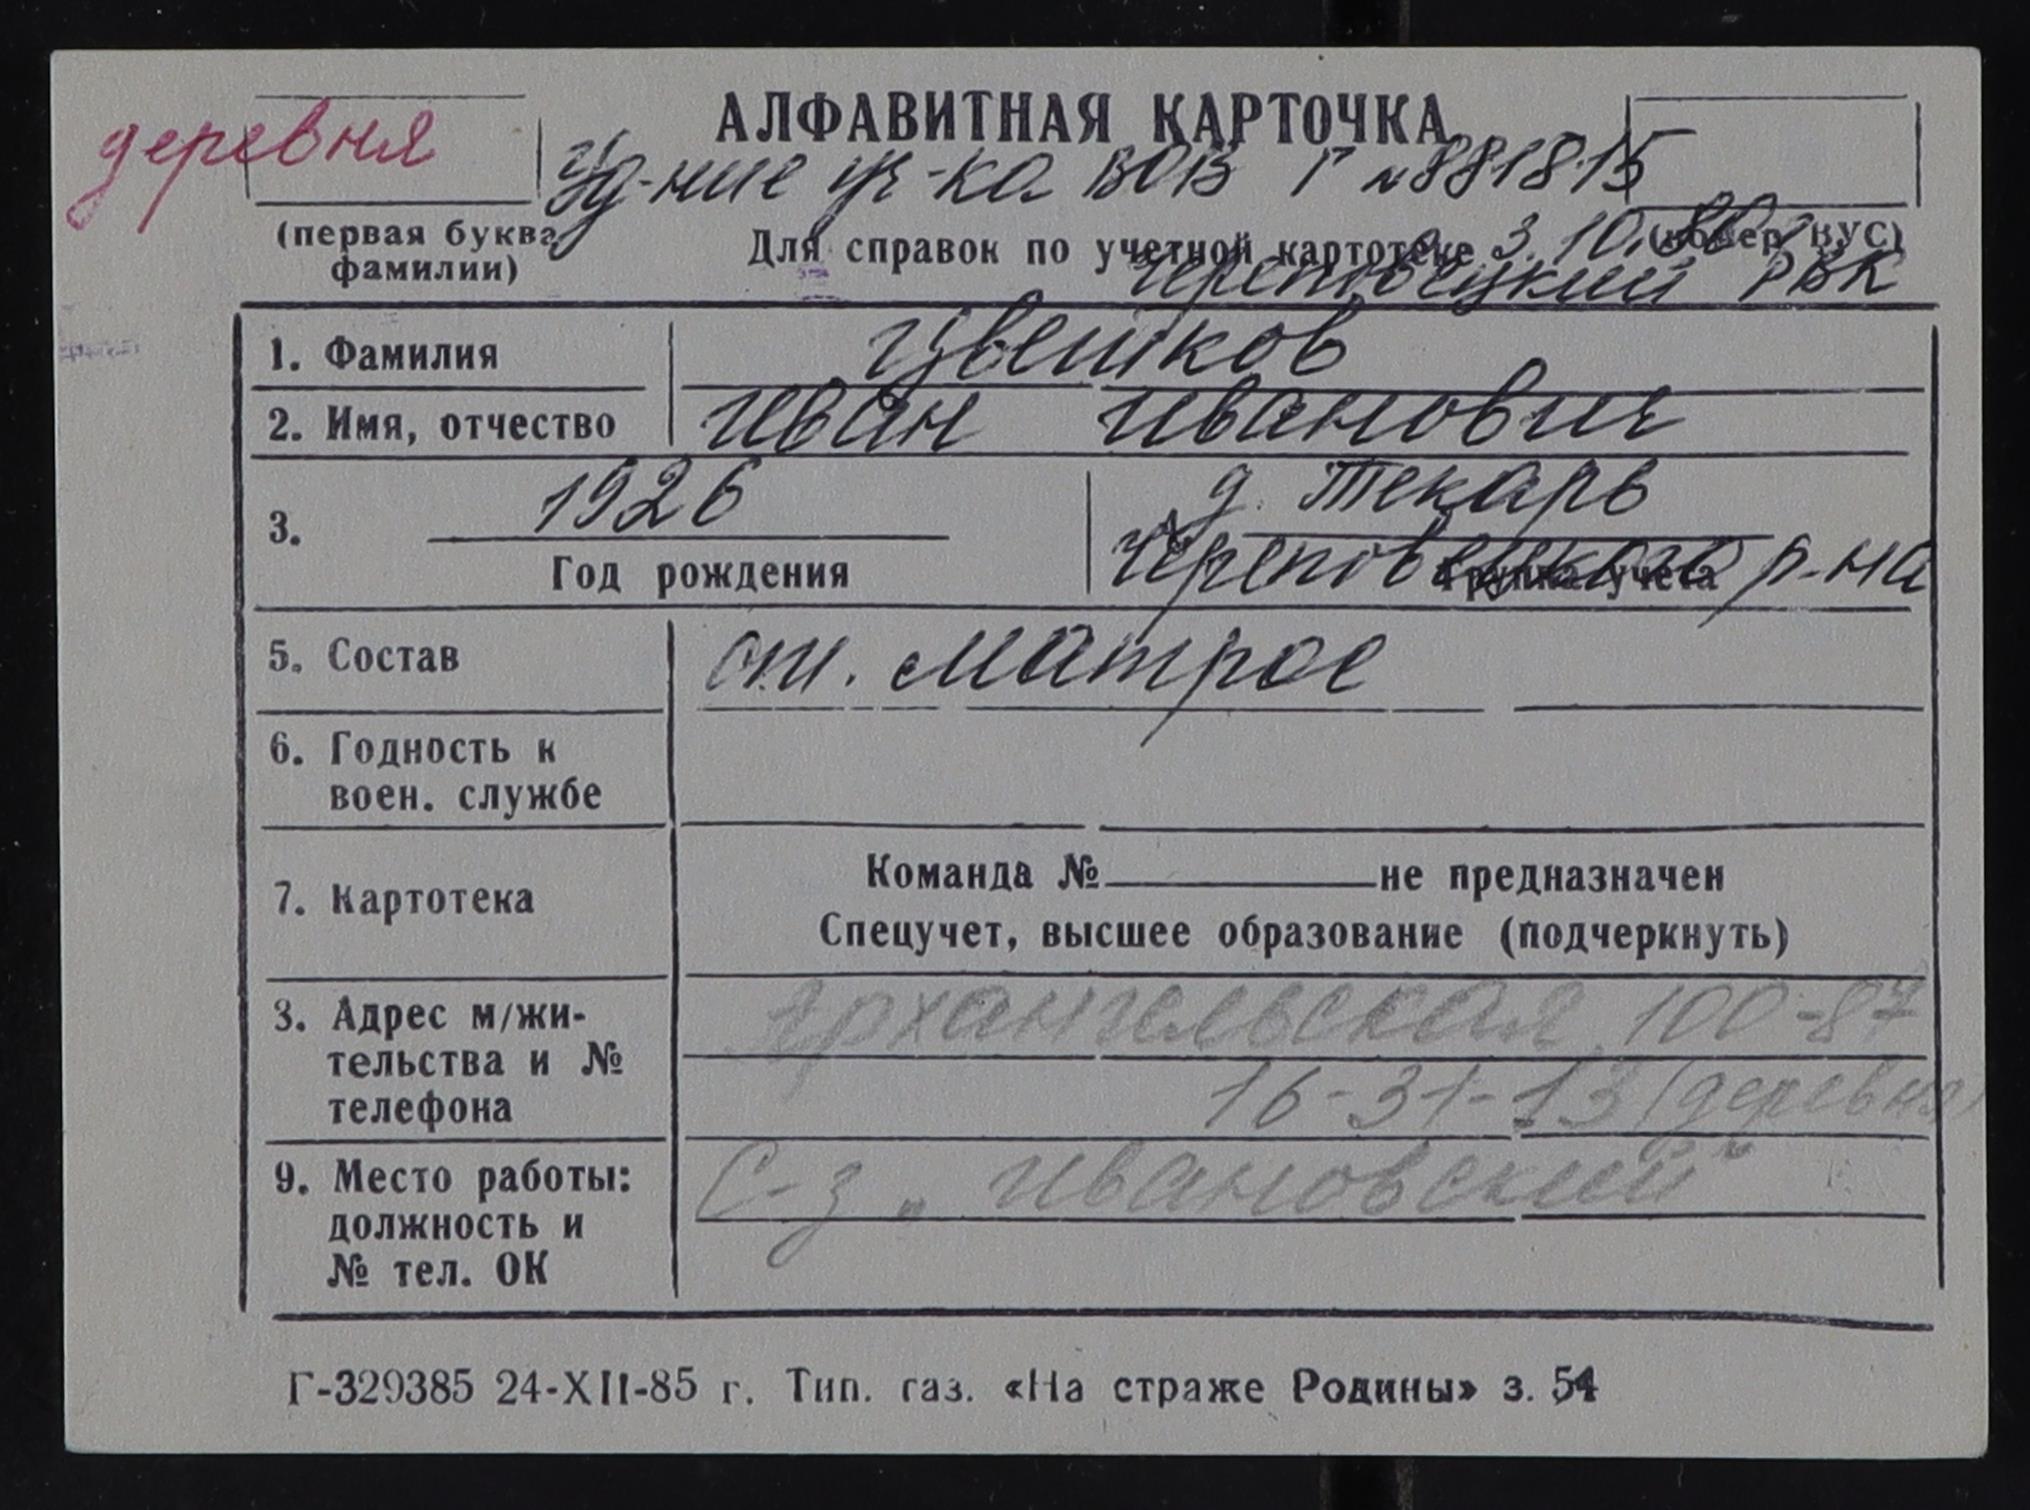 АЛФАВИТНАЯ КАРТОЧКА
деревня
Уд-ние уч-ка ВОВ Г №881815
(первая буква фамилии)
Для справок по учетной картотеке
(номер ВУС)
3.10.80
Череповецкий РВК
1. Фамилия Цветков
2. Имя, отчество Иван Иванович
3. 1926 д. Текарь
Год рождения Череповецкого р-на
Группа учета
5. Состав ст. матрос
6. Годность к
воен. службе
7. Картотека
Команда № не предназначен
Спецучет, высшее образование (подчеркнуть)
8. Адрес м/жи-
тельства и №
телефона
Архангельская 100-87
16-31-13 (деревня)
9. Место работы:
должность и
№ тел. ОК
С-з „Ивановский"
Г-329385 24-XII-85 г. Тип. газ. «На страже Родины» з. 54